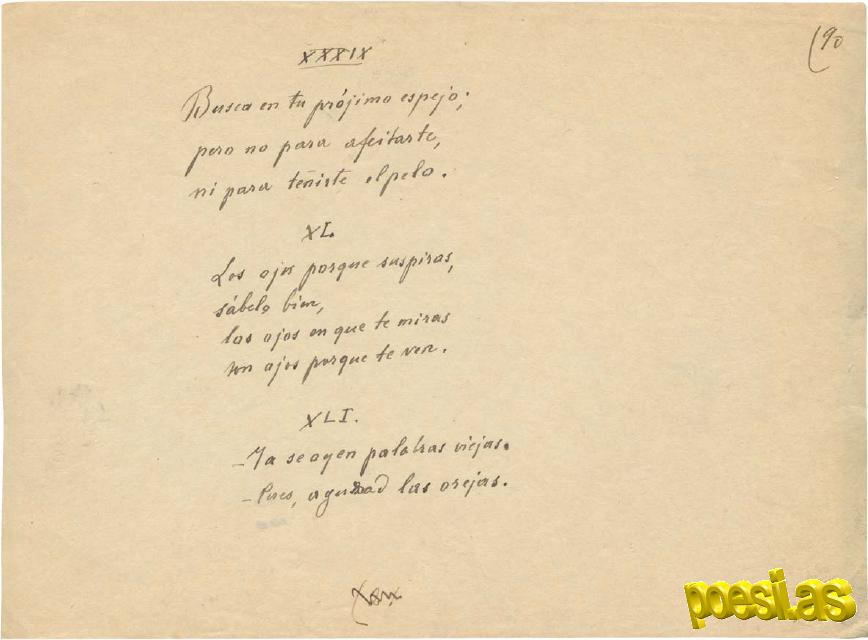 (90
XXXIX
Busca en tu prójimo espejo;
pero no para afeitarte,
ni para teñirte el pelo.
XL.
Los ojos porque suspiras,
sábelo bien,
los ojos en que te miras
son ojos porque te ven.
XLI.
-Ya se oyen palabras viejas.
-Pues, aguzad las orejas.
poesi.as